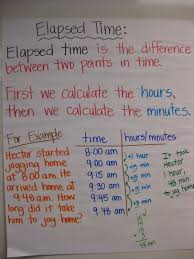 Elapsed Time:
Elapsed time is the difference
between two points in time.
First we calculate the hours,
then we calculate the minutes.
For Example
Hector started
jogging home
at 8:00 am. He
arrived home at
9:48 a.m. How
long did it take
him to joy home?
time
8:00 am
9:00 am
9:15 am
9:30 am
9:45 am
9:48 am
hours/minutes
+1 hour
+15 min
+15 min
+15 min
+3 min
It took
Hector
1 hour
48 min
to joy
home